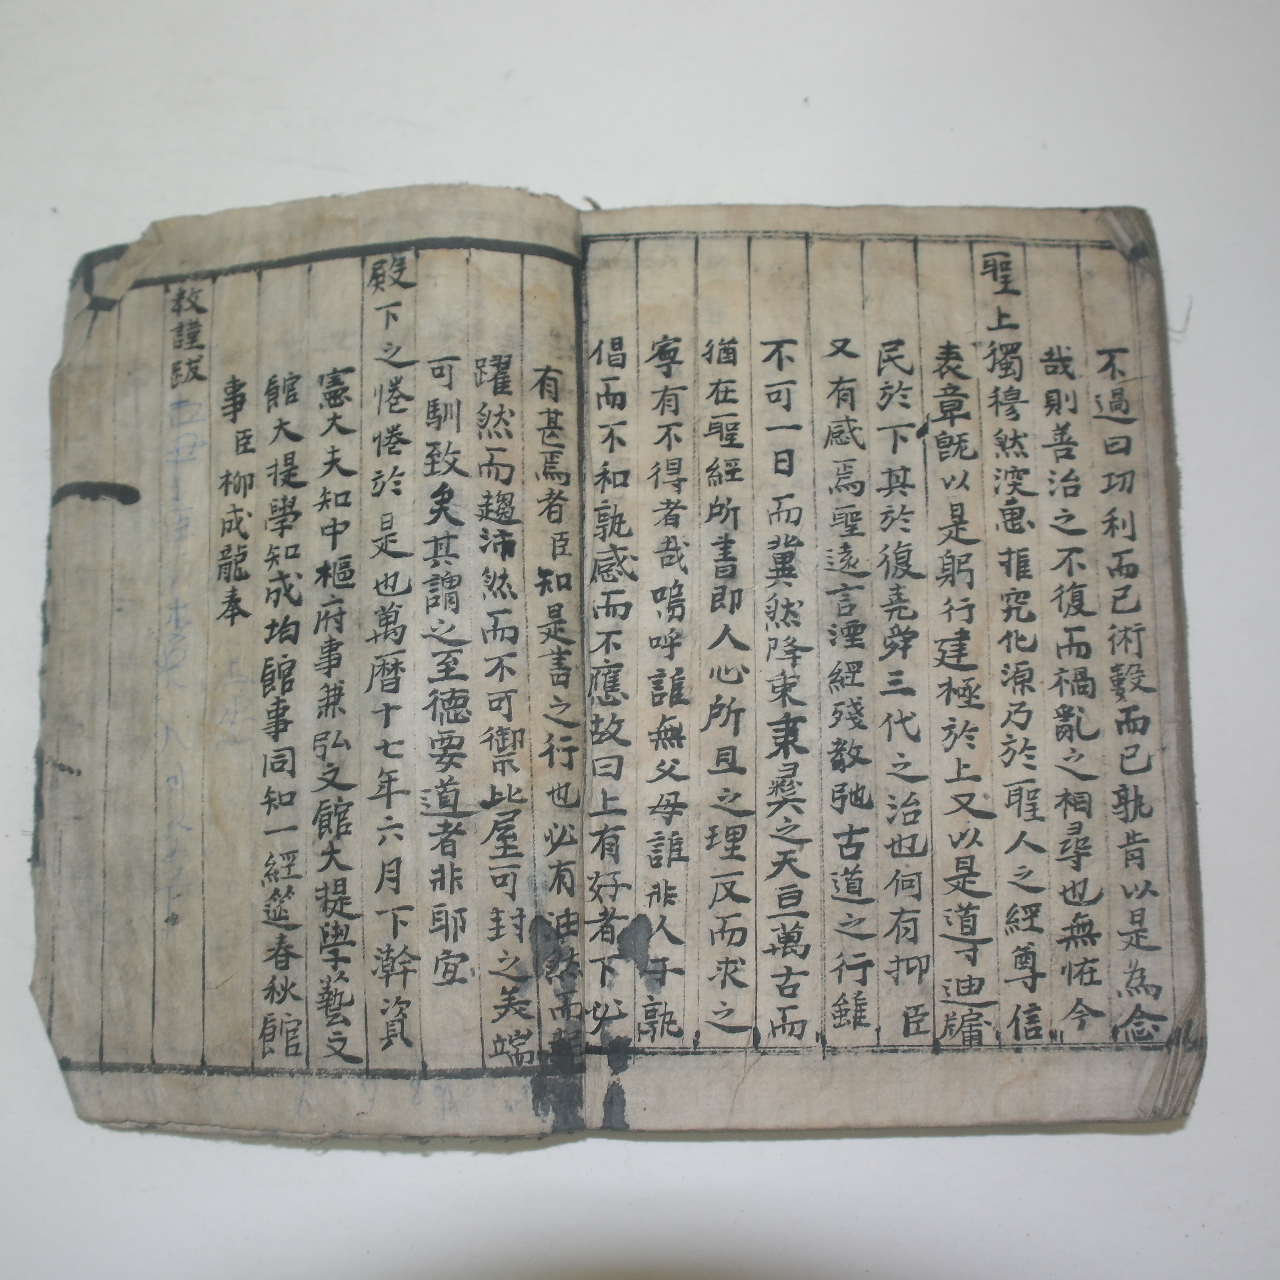 不過曰功利而已術數而已孰肯以是為念
哉則善治之不復而禍亂之相尋也無恠今
聖上獨穆然深惠推究化源乃於聖人之經尊信
表章旣以是躬行建極於上又以是道寸迪牖
民於下其於復堯舜三代之治也何有抑臣
又有感焉聖遠言湮經殘敎弛古道之行雖
不可一日而冀然降衷秉彛之天亘萬古而
猶在聖經所書即人心所且之理反而求之
寧有不得者哉嗚呼誰無父母誰非人子孰
倡而不和孰感而不應故曰上有好者下必
有甚焉者臣知是書之行也必有油然而起
躍然而趨沛然而不可禦比屋可封之美端
可馴致矣其謂之至德要道者非耶宜
殿下之惓惓於是也萬曆十七年六月下澣資
憲大夫知中樞府事兼弘文館大提學藝文
館大提學知成均館事同知一經筵春秋館
事臣柳成龍奉
敎謹跋